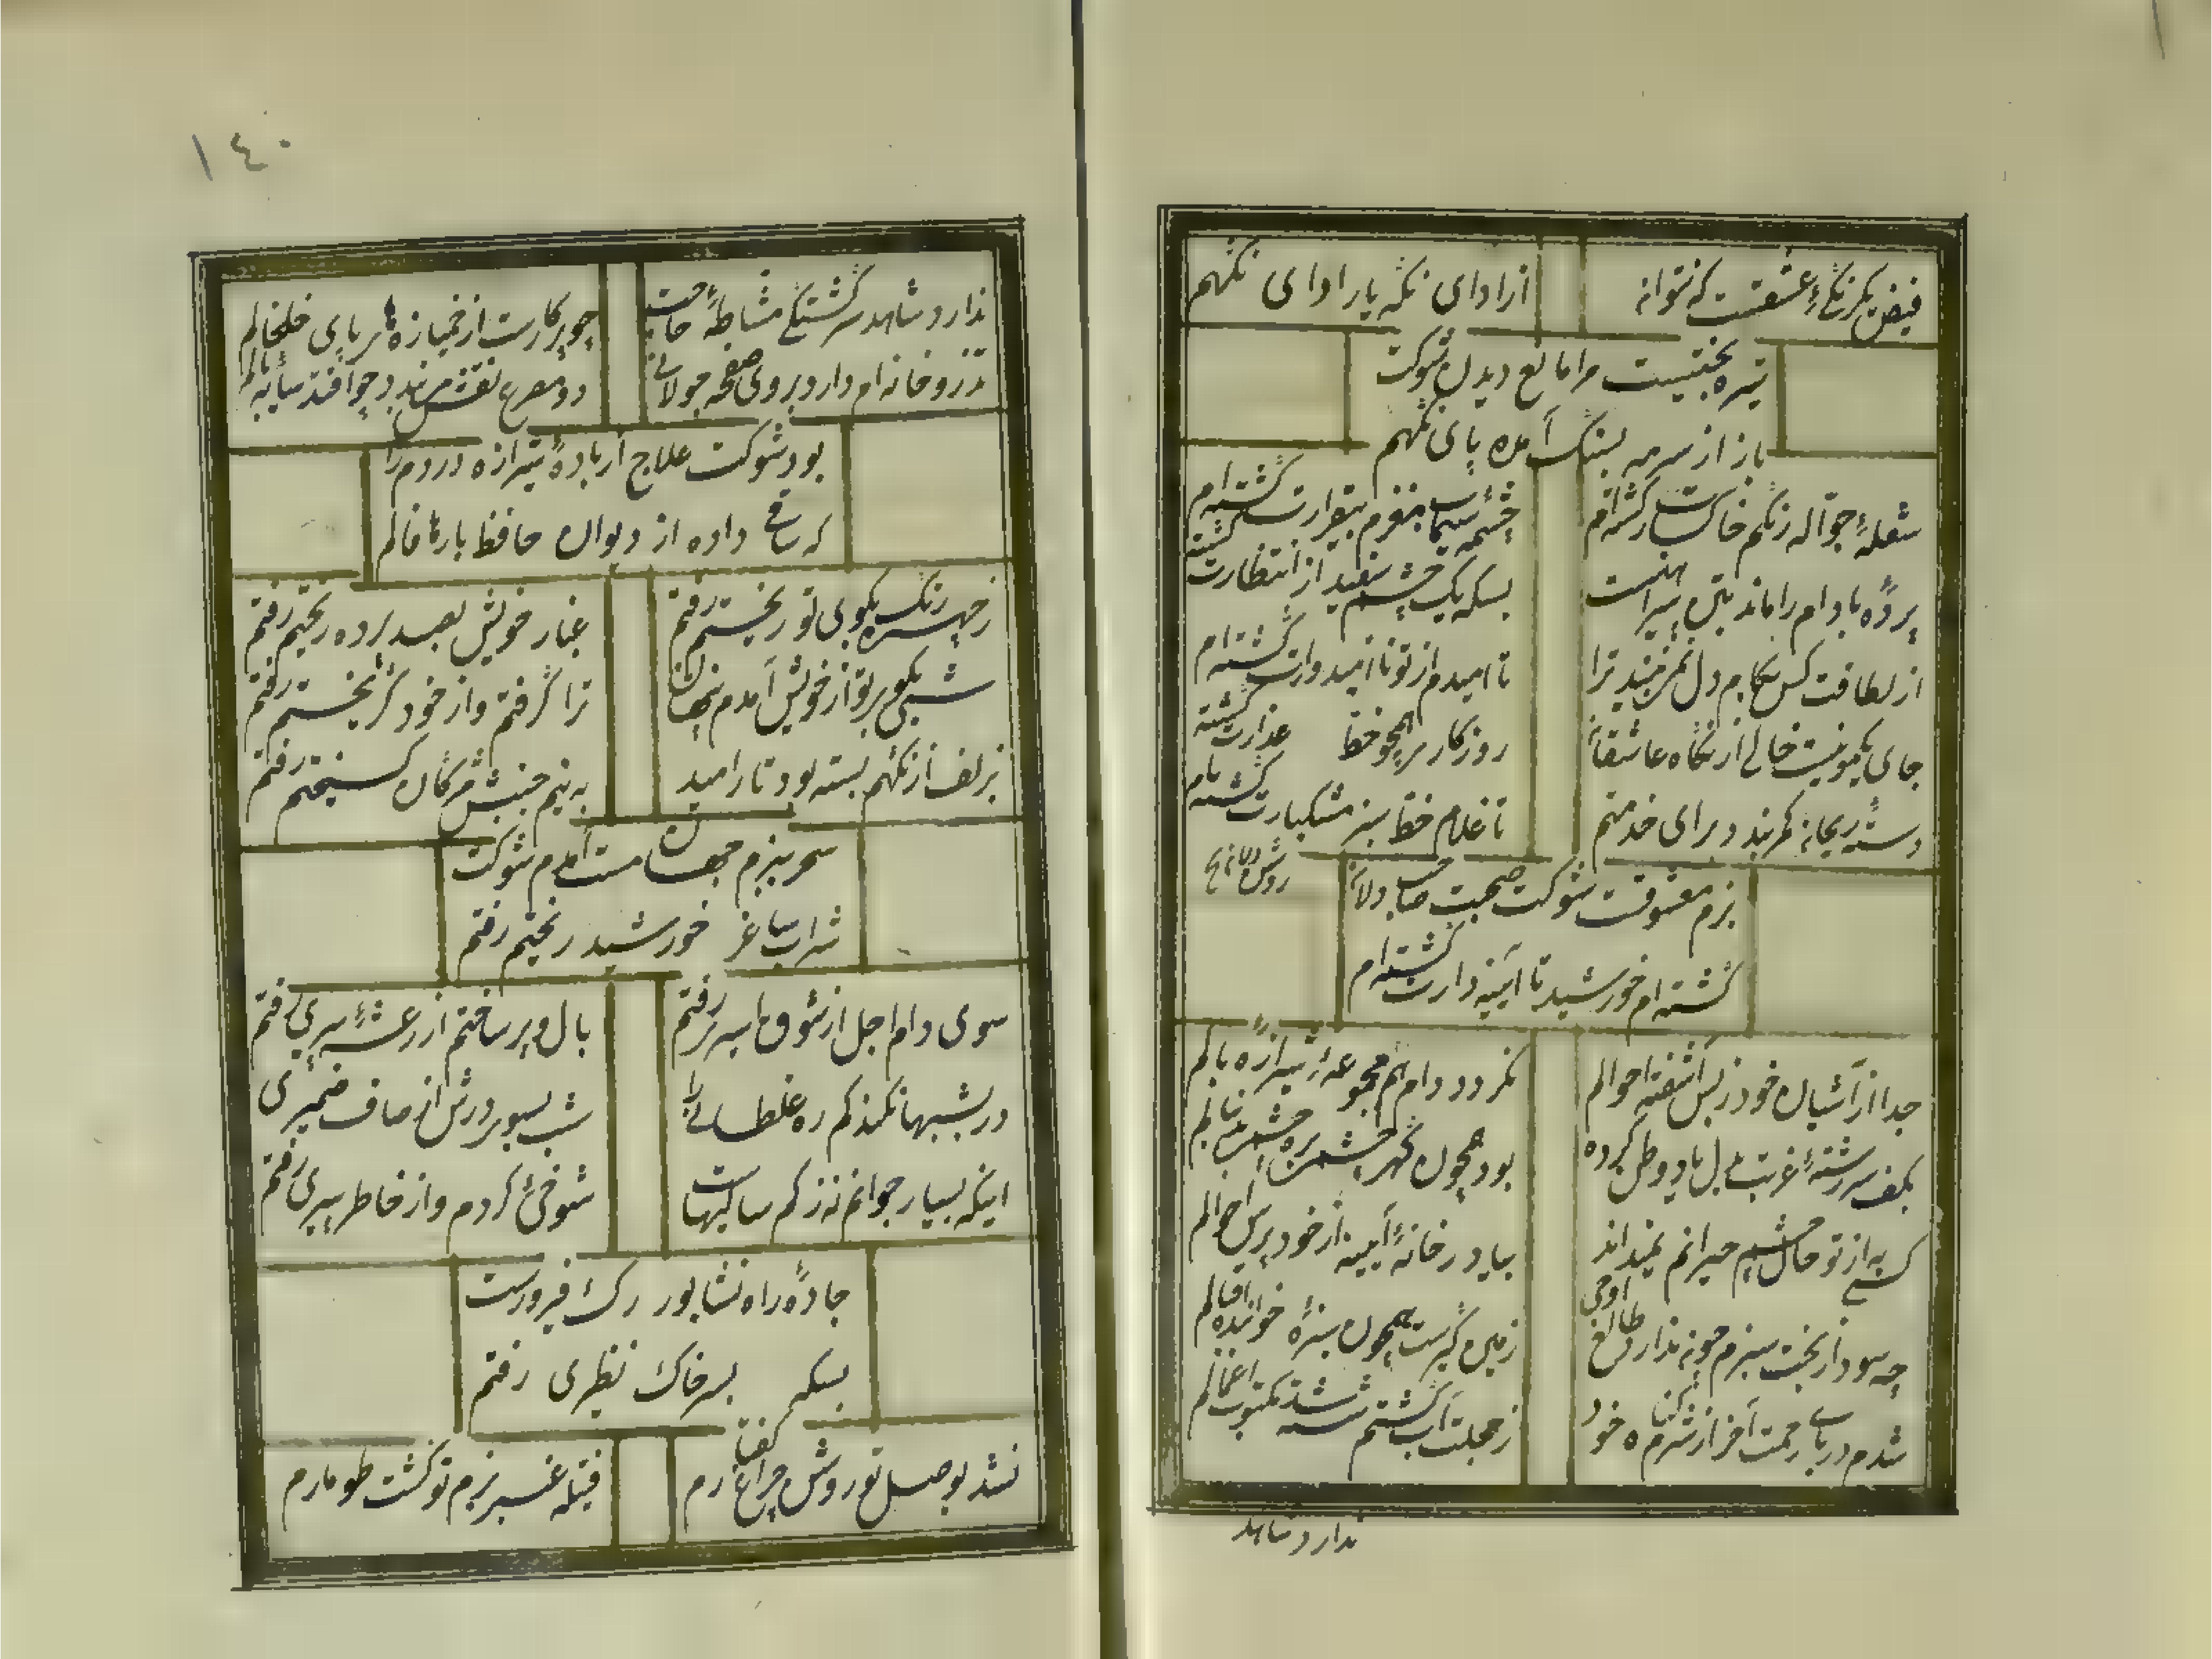 فیض یکرنگی عشقت که نتوانه
از ادای نکه یار ادای نکهم
تیره بختیست مرا مانع دیدن شوکت
باز از سرمه بسنک آمده پای نکهم
شعلهٔ جواله رنکم خاکسارت کشته‌ام
چشمه سیماب مغزم بیقرارت کشته‌ام
پردهٔ بادام را ماند پیراهنست
بسکه یک چشم سفید از انتظارت کشته
از لطافت کس بکام دل نمی‌بیند ترا
تا امیدم از تو نا امیدوارت کشته‌ام
جای یکمو نیست خالی از نکاه عاشقان
روزکار همچو خط عذارت کشته
دسته ریحان کمر بندد برای خدمتم
تا غلام خط سبز مشکبارت کشته‌ام
بزم معشوقست شوکت صحبت صاحب دلان
کشته‌ام خورشید تا آیینه دارت کشته‌ام
جدا از آشیان خود ز بس آشفته احوالم
نکردد دام هم مجموعهٔ شیرازه بالم
بکف سررشتهٔ غربت دل باد وطن کرده
بود همچون کهر چشم براه چشم
کسی به از تو حال چشم حیرانم نمیداند
بیا در خانهٔ آیینه از خود پرس احوالم
چه سود از بخت سبزم چونه ندارد طالع اوجی
زمین کیرست همچون سبزهٔ خوابیده اقبالم
شدم دریای رحمت آخر از شرم کناه خود
ز خجلت آب کشتم شسته شد مکتوب اعمالم
ندارد شاهد
١٤٠
ندارد شاهد سرکشتکی مشاطهٔ حاجت
چو پرکارست از خمیازه‌ها بر پای خلخالم
تذرو خانه‌ام دارد بروی صفحه جولانی
دو مصرع نقش می‌بندد چو افتد سایه بالم
بود شوکت علاج از بادهٔ شیرازه دردم را
که ساقی داده از دیوان حافظ بارها فالم
ز چهره رنک بکوی تو ریختم رفتم
غبار خویش بصد پرده ریختم رفتم
شبی بکوی تو از خویش آمدم پنهان
ترا کرفتم و از خود کریختم رفتم
بزلف از نکهم بسته بود تار امید
به نیم جنبش مژکان کسیختم رفتم
سحر ببزم جهان مست آمدم شوکت
شراب بساغر خورشید ریختم رفتم
سوی دام اجل از شوق اسیری رفتم
بال و پر ساختم از رعشهٔ پیری رفتم
در شبیها نکند کم ره غلطانی را
شب بسوی درش از صاف ضمیری
اینکه بسیار جوانم نه ز کم سالیهاست
شوخی کردم و از خاطر پیری رفتم
جادهٔ راه نشابور رک فیروزست
بسکه بسر خاک نظیری رفتم
نشد بوصل تو روشن چراغ کفتارم
فتیله عنبر بزم تو کشت طومارم